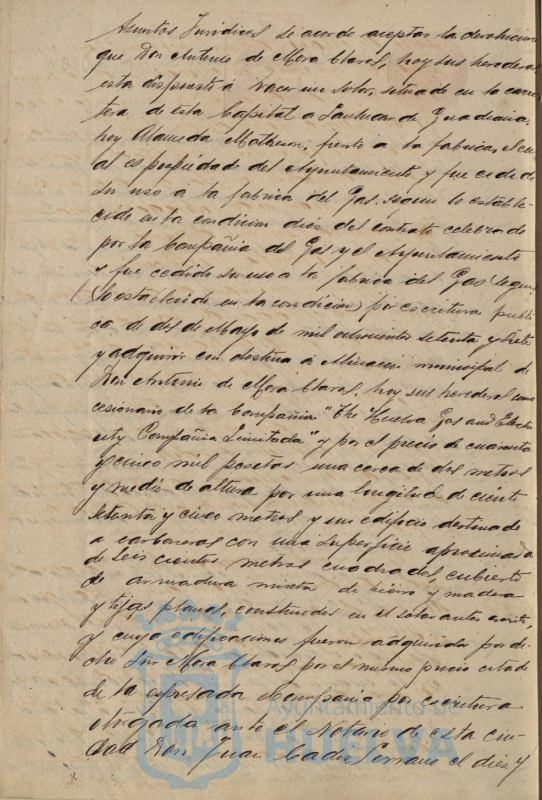 Asuntos Jurídicos se acordo aceptar la devolucion
que Don Antonio de Mora Claros, hoy sus herederos,
esta dispuesto á hacer un solar, situado en la carre
tera de esta Capital a Sanlucar de Guadiana,
hoy Alameda Matheson, frente a la fabrica, el cu
al es propiedad del Ayuntamiento y fue cedido
su uso a la fabrica del Gas, segun lo estable-
cido en la condicion diez del contrato celebrado
por la Compañia del Gas y el Ayuntamiento
y fue cedido su uso a la fabrica del Gas segun
(lo establecido en la condicion) por escritura publi
ca de dos de Mayo de mil ochocientos setenta y siete
y adquirir con destino á municipal de
Don Antonio de Mora Claros, hoy sus herederos como
cesionario de la Compañia "The Huelva Gas and Electri
city Compañia Limitada" y por el precio de cuarenta
y cinco mil pesetas una cerca de dos metros
y medio de altura por una longitud de ciento
setenta y cinco metros y un edificio destinado
a carboneras con una superficie aproximada
de seis cientos metros cuadrados, cubierto
de armadura mixta de hierro y madera
y tejas planas, construidos en el solar antes
y cuyas edificaciones fueron adquiridas por di-
cho Sor Mora Claros por el mismo precio citado
de la expresada Compañia por escritura
otorgada ante el Notario de esta ciu-
dad Don Juan Cadiz Serrano el diez y
Ayuntamiento de
HUELVA